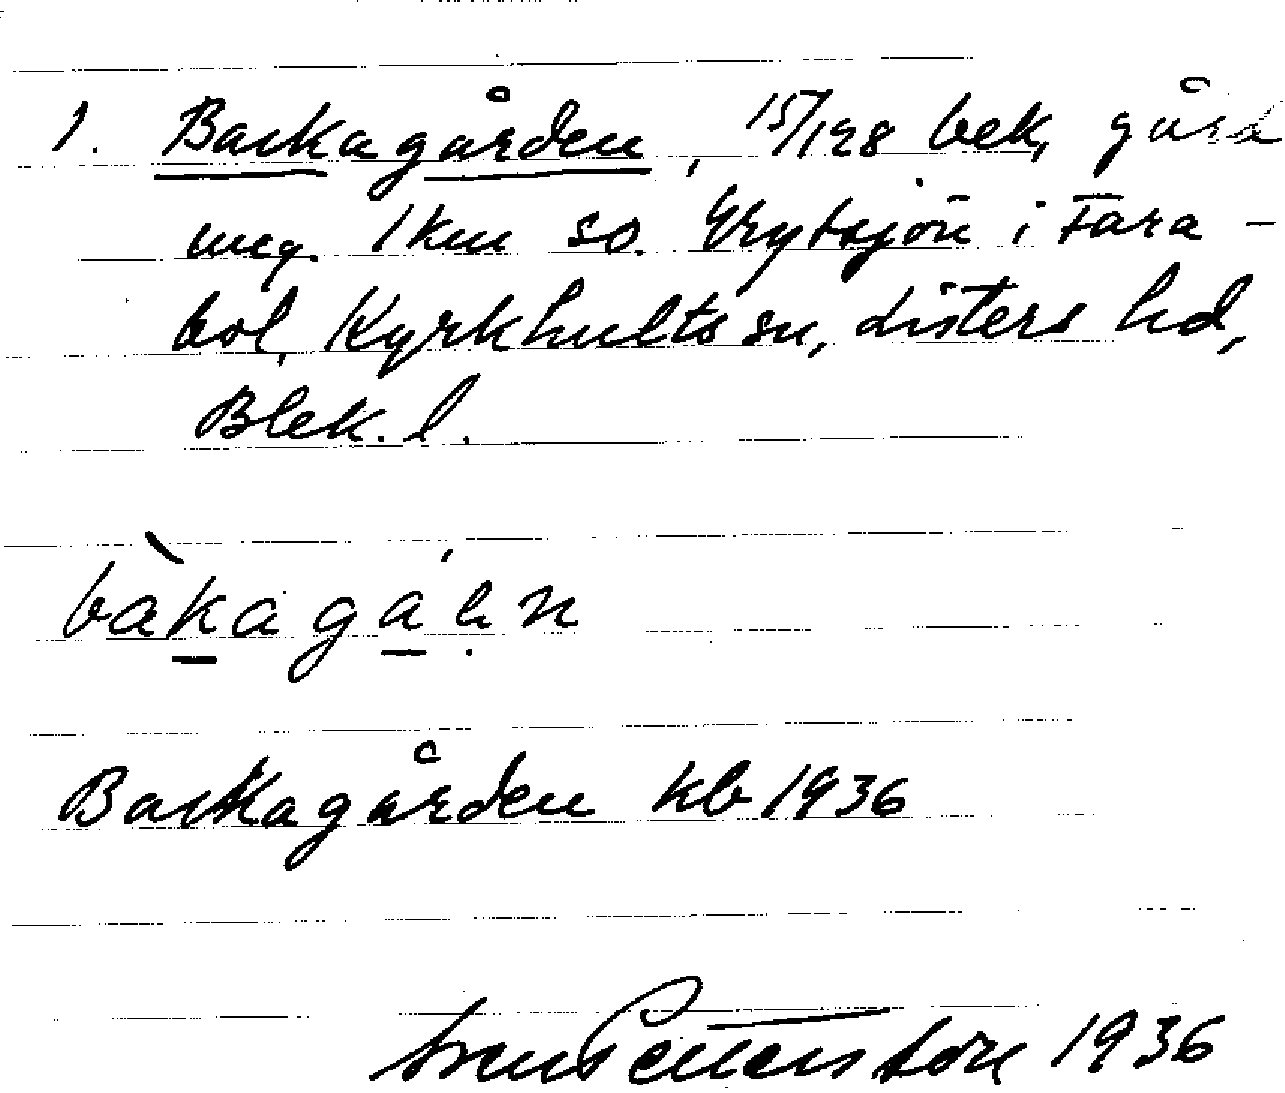 1. Backagården, 15/128 bek, gård
meg. 1 km so. Grytsjön i Fara-
bol, Kyrkhults sn, Listers hd,
Blek. l.
bàkagáʀn
Backagården kb 1936
Sven Pettersson 1936